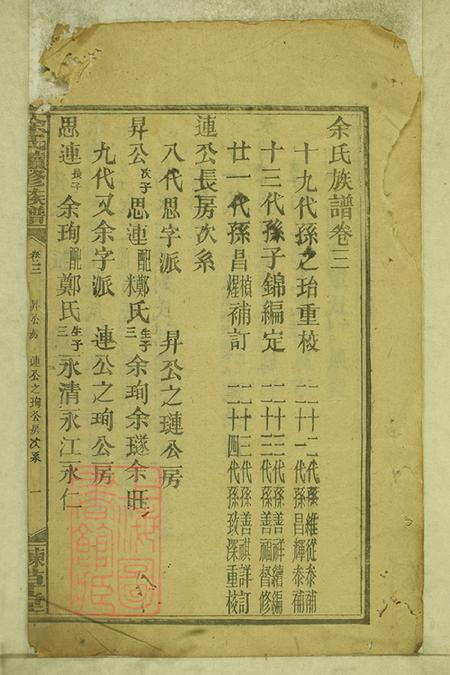 余氏族譜卷三
十九代孫之珆重校
二十二代孫維從泰補
二十一代孫昌輝泰補
十三代孫子錦編定
二十三代孫善祥續編
二十三代孫善福督修
廿一代孫昌楨燿補訂
二十三代孫善祺詳訂
二十四代孫致深重校
連公長房次系
八代思字派 昇公之璉公房
昇公次子思連配鄭氏生子三余珣余璲余旺
九代又余字派 連公之珣公房
思連長子余珣配鄭氏生子三永清永江永仁
余氏續修族譜
卷三
昇公房 連公之珣公房次系
一